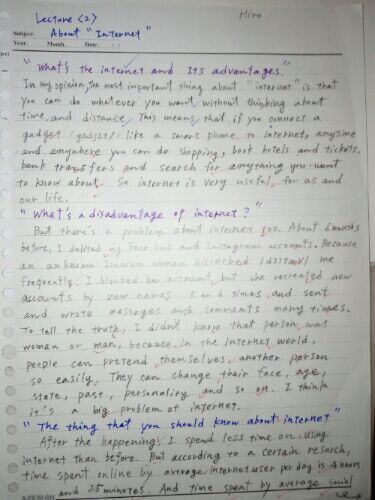 Lecture <2>
Hiro
Subject About "Internet"
Year. Month. Date.
"What's the internet and Its advantages."
In my opinion, the most important thing about "internet" is that
you can do whatever you want without thinking about
time and distance. This means that if you connect a
gadget /gadʒit/ like a smart phone, to internet, anytime
and anywhere you can do shopping, book hotels and tickets,
bank transfers and search for anything you want
to know about. So internet is very useful for us and
our life.
"What's a disadvantage of internet?"
But there's a problem about internet too. About 6 months
before, I deleted my Face book and Instagram accounts. Because
an unknown woman disturbed me
frequently. I blocked her account, but she recreated new
accounts by new names 5 or 6 times, and sent
and wrote messages and comments many times.
To tell the truth, I didn't know that person was
woman or man, because in the internet world,
people can pretend themselves another person
so easily. They can change their face, age,
state, past, personality and so on. I think
it's a big problem of internet.
"The thing that you should know about internet"
After the happening, I spend less time on using
internet than before. But according to a certain resarch,
time spent online by average internet user per day is 4 hours
and 25 minutes. And time spent by average social